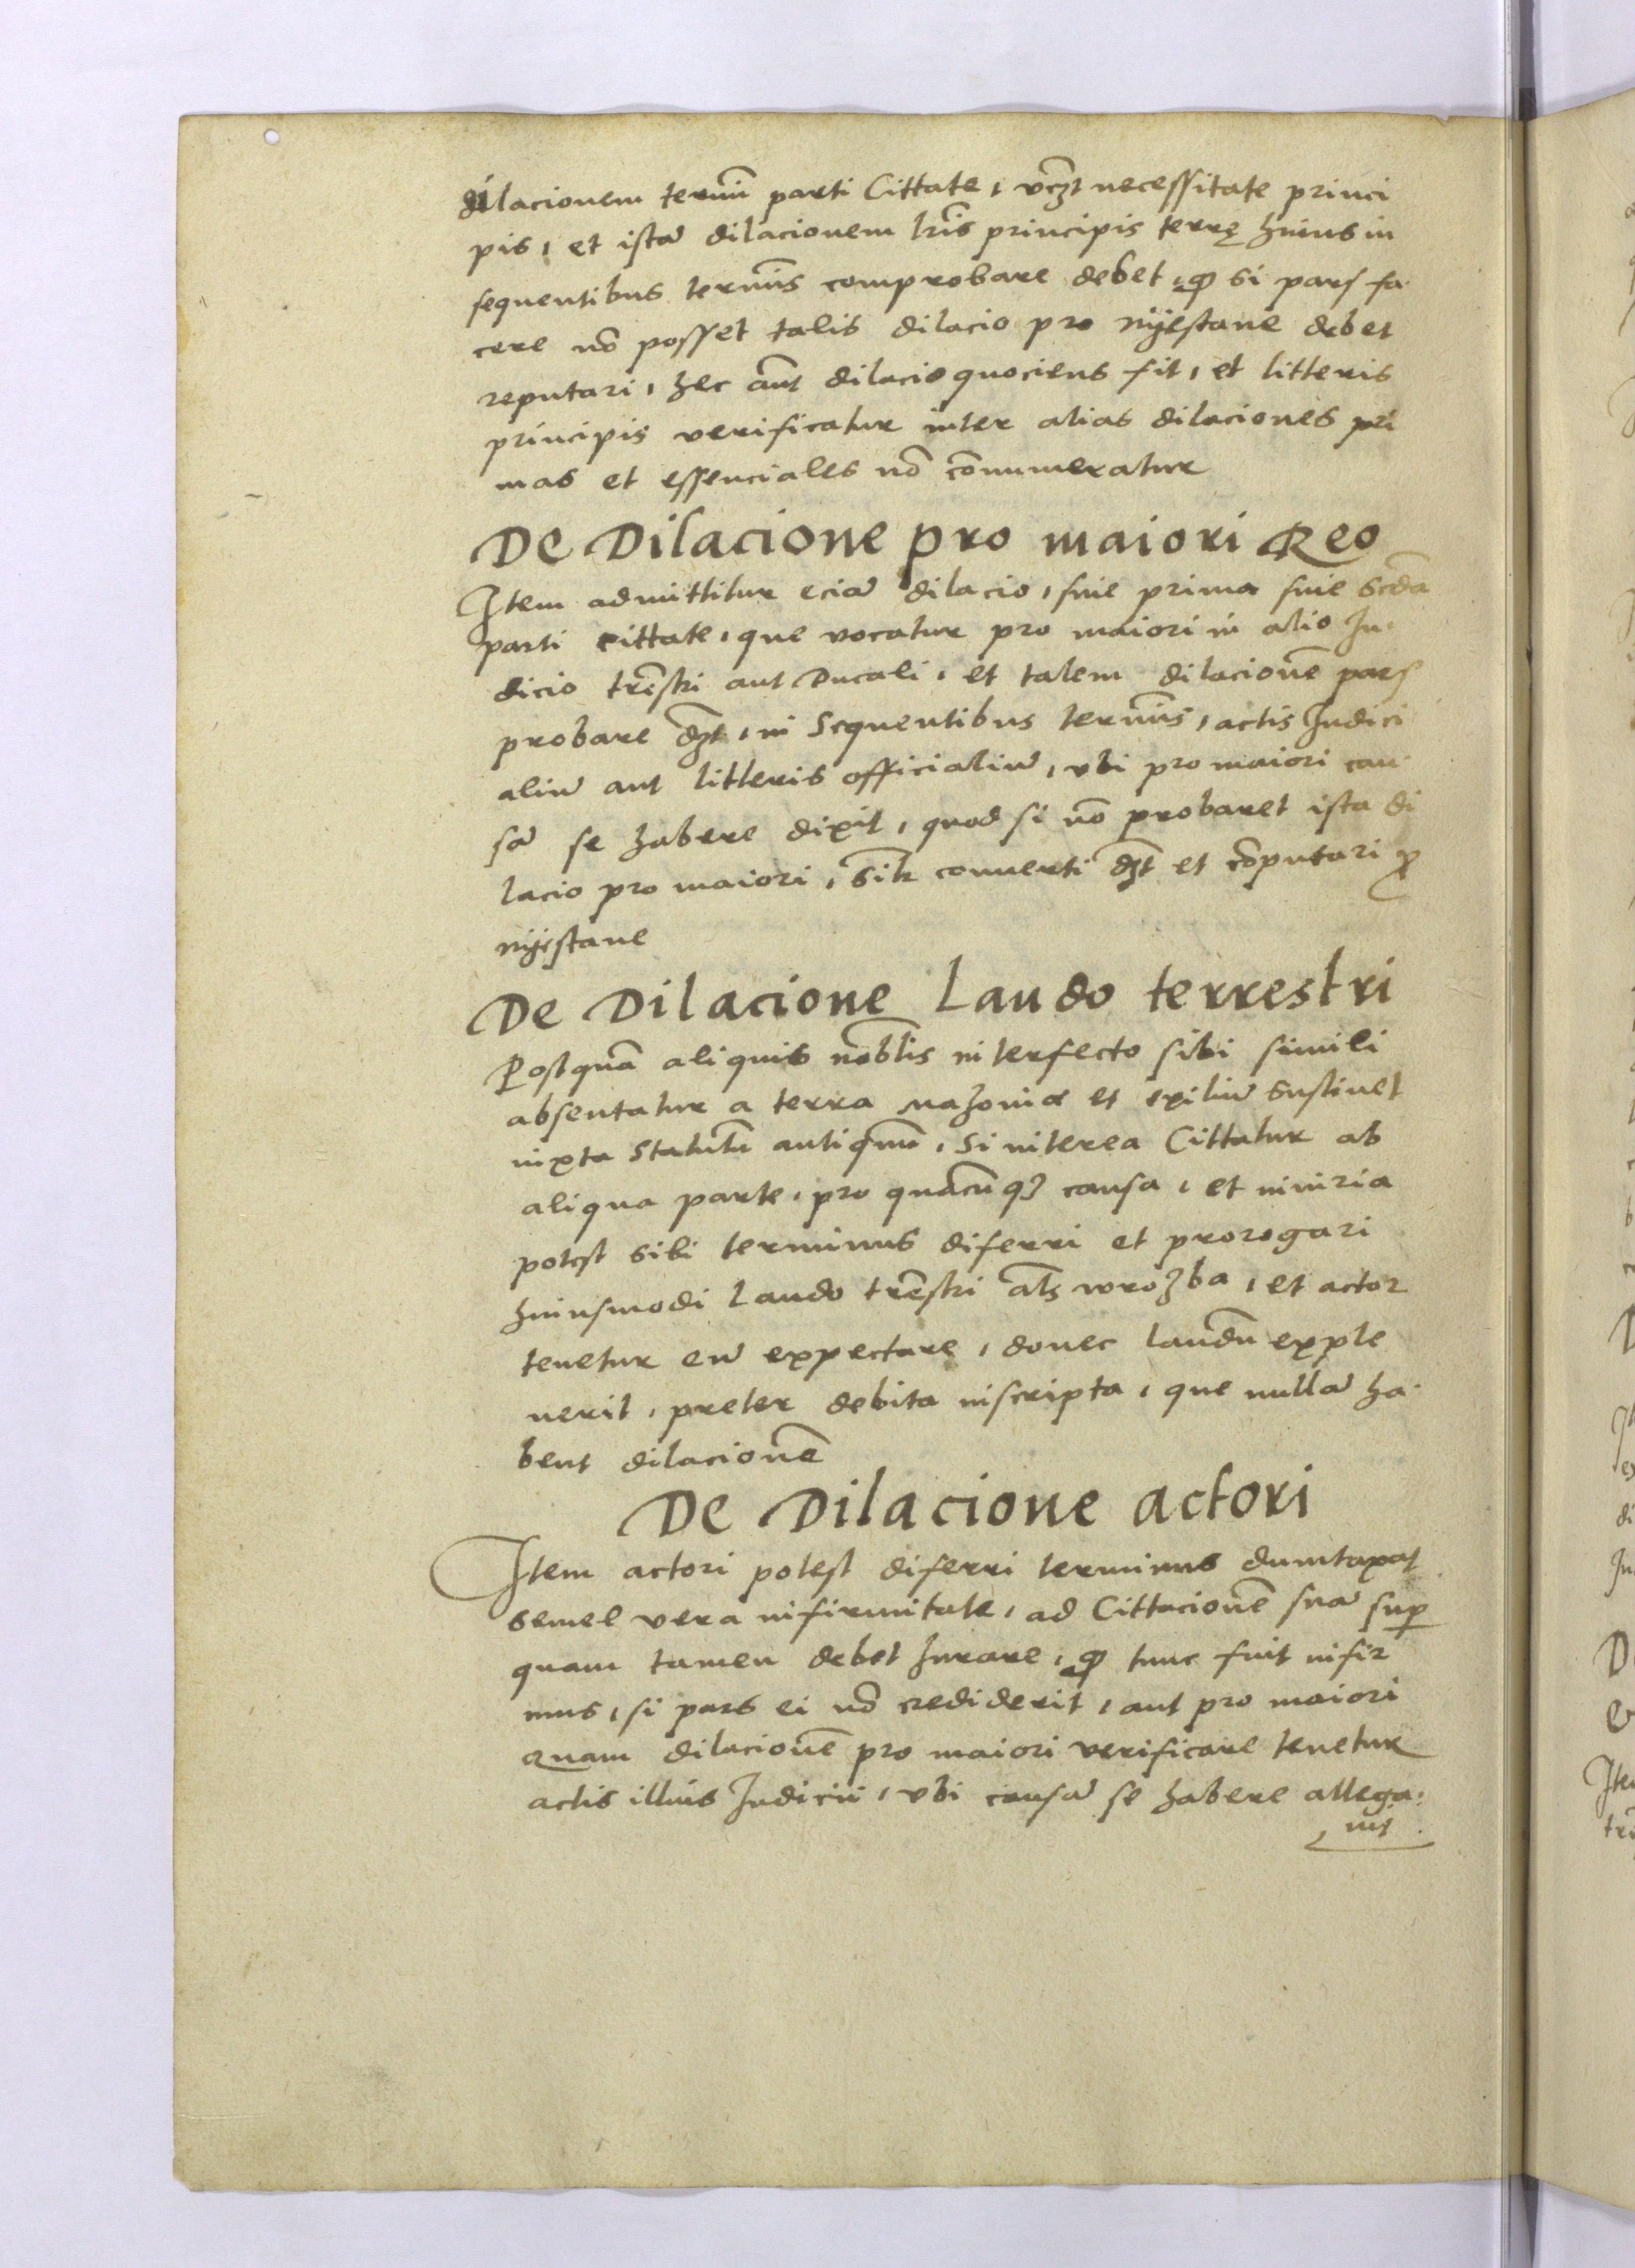 dilacionem termī parti Cittate, vcꝫt necessitate princi
pis, et istā dilacionem lr̄is principis terrę huius in
sequentibus termīs comprobare debet, ꝙ si pars fa-
cere nō posset talis dilacio pro nyestane debet
reputari, hec aūt dilacio quociens fit, et litteris
principis verificatur inter alias dilaciones pri
mas et essenciales nō cōnumeratur
De Dilacione pro maiori Reo
Item admittitur eciā dilacio, siue prima siue scd̄a
parti cittate, que vocatur pro maiori in alio Ju-
dicio trēstri aut Ducali, et talem dilacionē pars
probare dꝫt, in Sequentibus termīs, actis Judici
aliū aut litteris officialiū, vbi pro maiori cau-
sā se habere dixit, quod si nō probaret ista di
lacio pro maiori, silr̄ conuerti dꝫt et cōputari ꝓ
nyestane
De Dilacione Laudo terrestri
Postquā aliquis nobl̄is interfecto sibi simili
absentatur a terra Mazouiæ et exiliū sustinet
iuxta Statutū antiqūm, Si interea Cittatur ab
aliqua parte, pro quācūqꝫ causa, et iniuria
potest sibi terminus diferri et prorogari
huiusmodi Laudo trēstri al̄s wrozba, et actor
tenetur eū expectare, donec laudū exple
uerit, preter debita inscripta, que nullā ha-
bent dilacionē
De Dilacione actori
Item actori potest diferri terminus dumtaxat
semel vera infirmitate, ad Cittacionē suā suꝑ
quam tamen debet Jurare, ꝙ tunc fuit infir
mus, si pars ei nō crediderit, aut pro maiori
Quam dilacionē pro maiori verificare tenetur
actis illius Judicii, vbi causā se habere allega-
uit